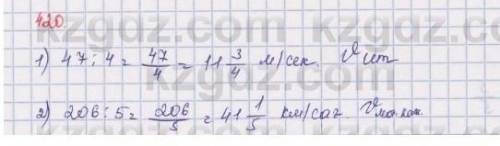 420
1) 47 : 4 = 47/4 = 11 3/4 м/сек.
2) 206 : 5 = 206/5 = 41 1/5 км/сағ.
kzgdz.com